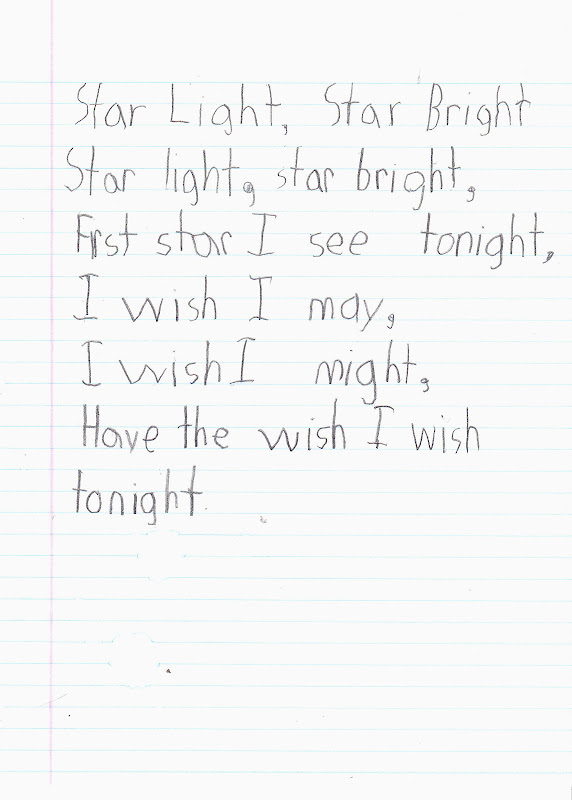 Star Light, Star Bright
Star light, star bright,
First star I see tonight,
I wish I may,
I wish I might,
Have the wish I wish
tonight.